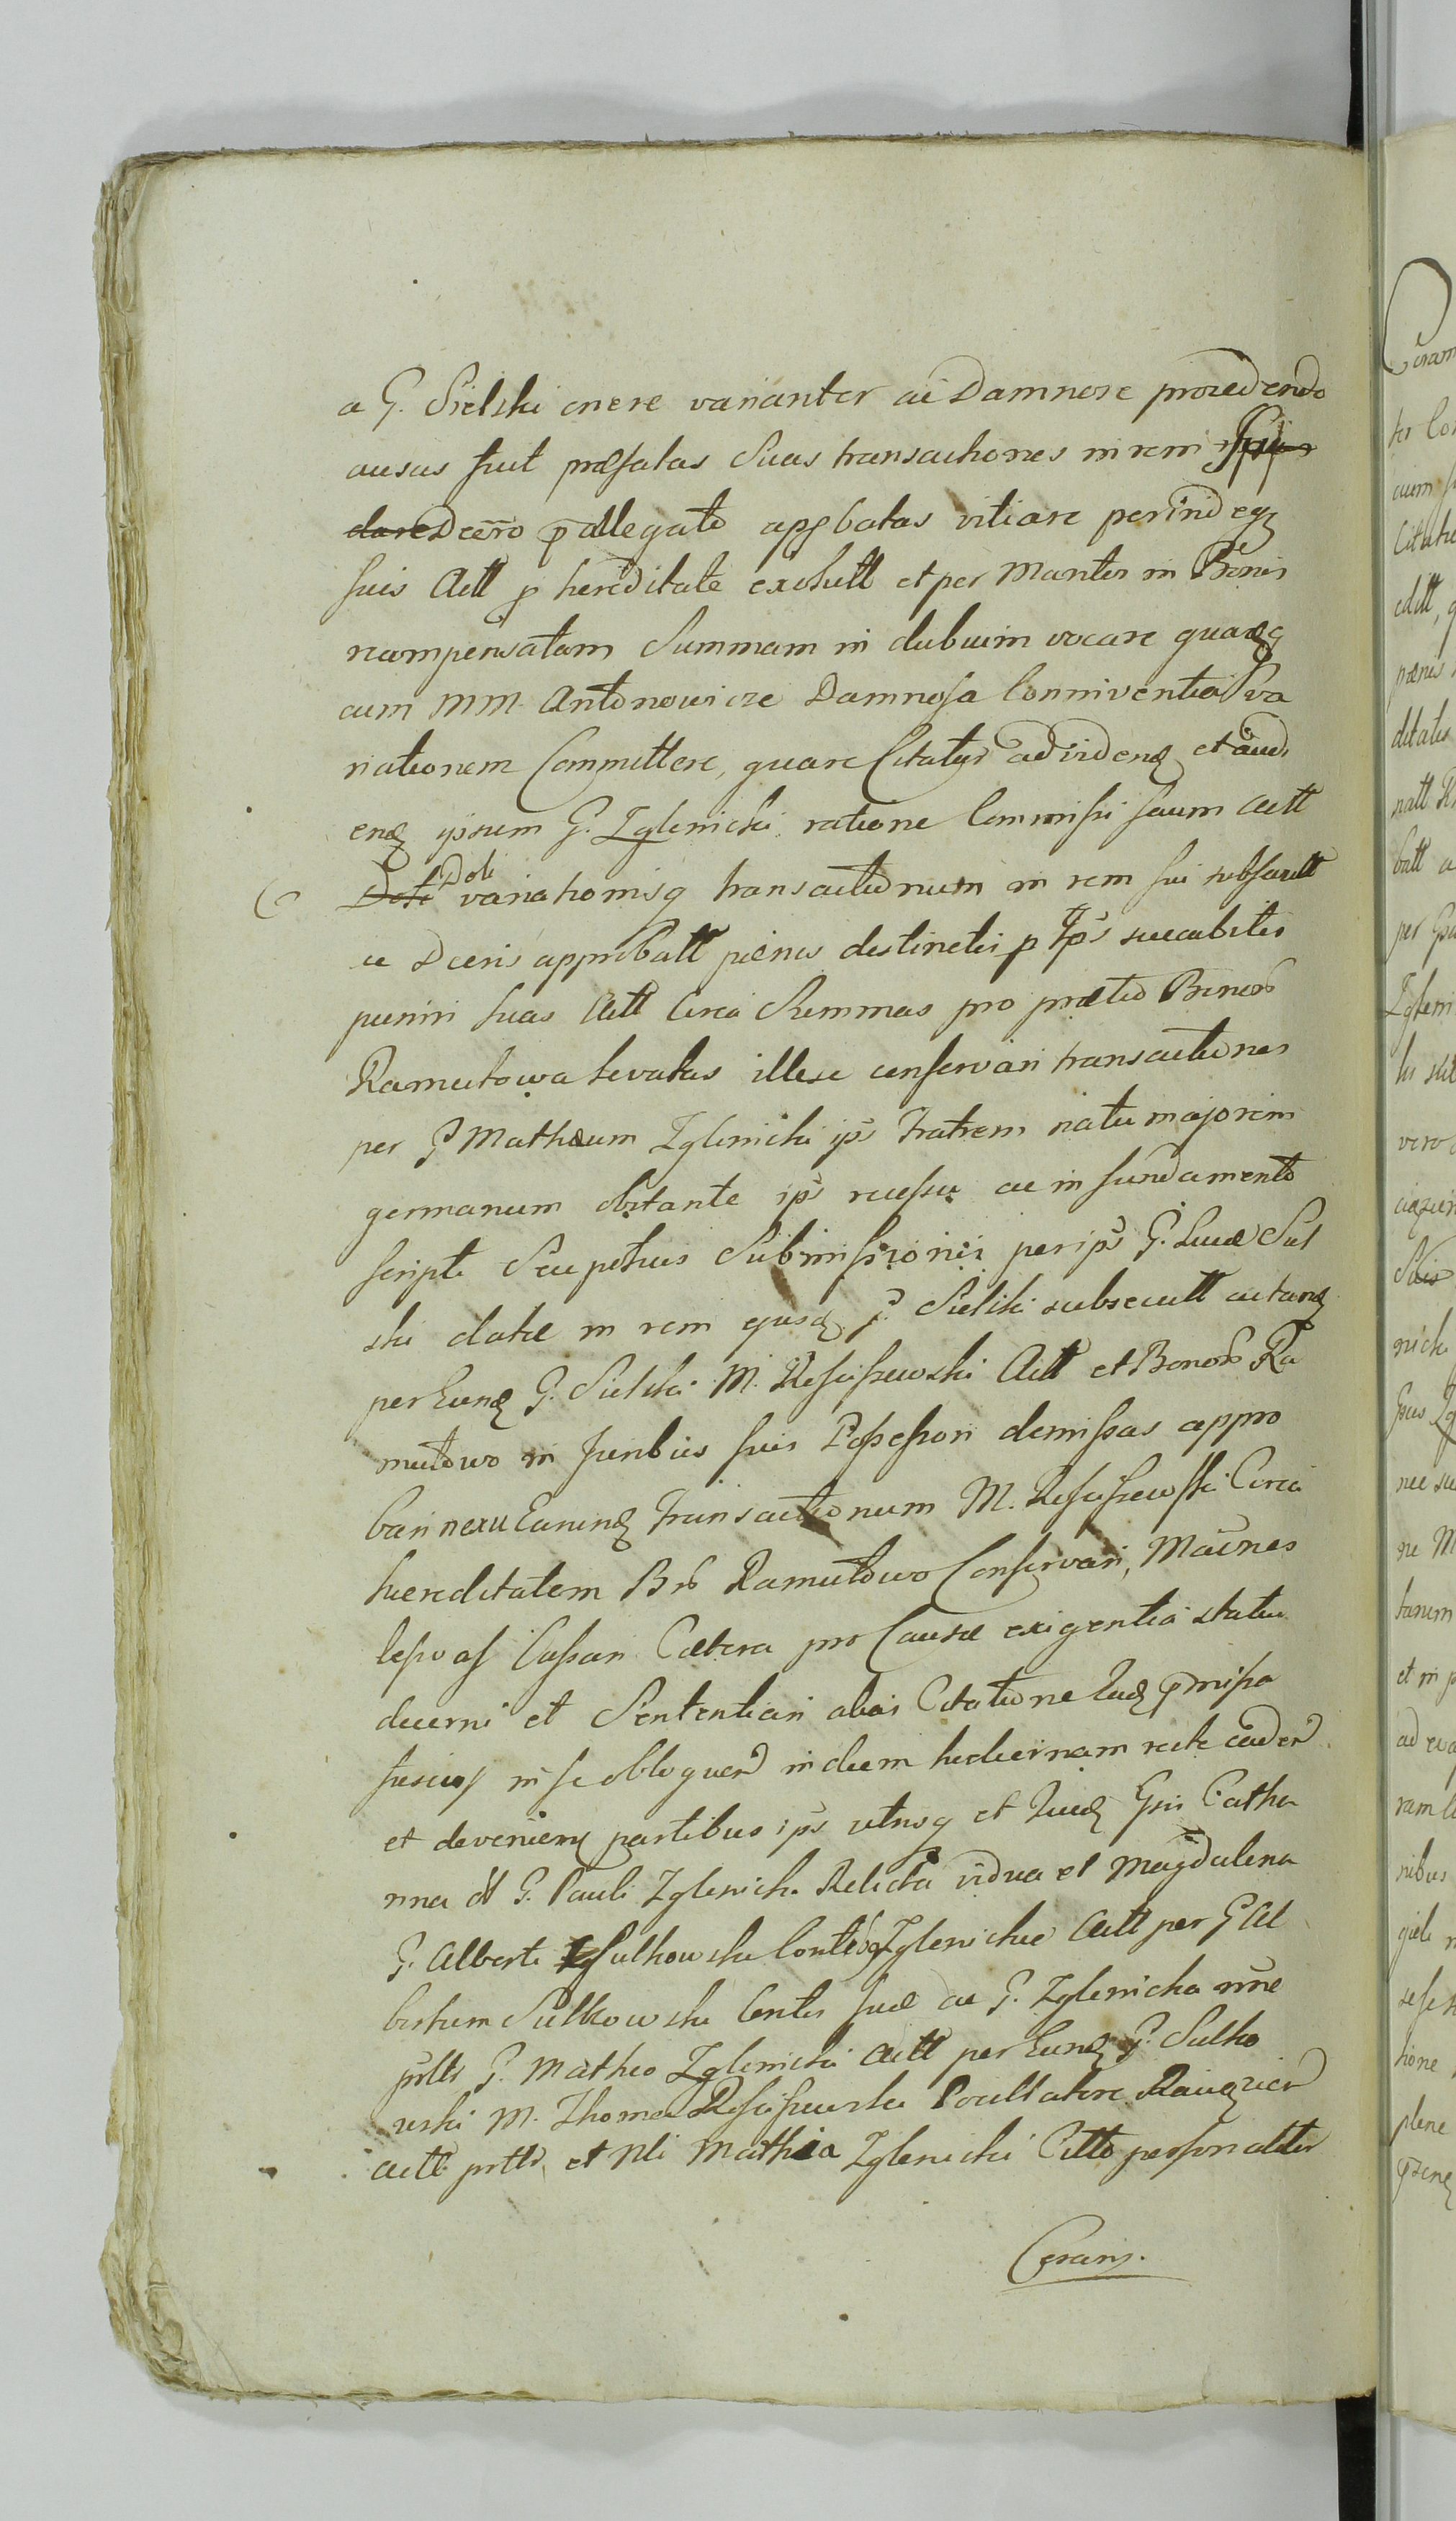 a G. Sielski onere varianter ac Damnose procedendo
ausus fuit præfatas Suas transactiones in rem
dare Decro p̄allegato approbatas vitiare perindeq
suis Actt p hereditate exolutt et per Manter in Bonis
recompensatam Summam in dubium vocare quamq
cum MM. Antonowicze Damnosa Conniventia Va
riationem Committere, quare Citatus ad videnꝫ et audi
enꝫ ipsum G. Zglenicki ratione Commissi suum Actt
Doli Doli variationisq transactionum in rem sui subsecutt
ac Decris approbatt poenis destinctis p ips succubitis
puniri suas Actt Circa Summas pro prætio Bonor
Ramutowa levatas illese conservari transactiones
per G Mathæum Zglenicki ips Fratrem natu majorem
germanum obstante ips recessu ac in fundamento
scripti Seu potius Submissionis per ips G. Lucæ Siel
ski datæ in rem ejusdꝫ G. Sielski subsecutt ac tanꝫ
per Eunꝫ G. Sielski M. Rosciszewski Actt et Bonor Ra
mutowo in Juribus suis Possessori demissas appro
bari nexu Earundꝫ Transactionum M. Rosciszewski Circa
hæreditatem Br Ramutowo Conservari, Maūnes
lesivas Cassari Cætera pro Causæ exigentia statu
decerni et Sententiari alias Citatione Eadꝫ p̄missa
fusius in se obloquen in diem hodiernam recte caden
et devenienꝫ partibus ips utrisq et quidꝫ Gsis Catha
rina olt G. Pauli Zglenicki Relicta vidua et Magdalena
G. Alberti Sulkowski Conte Zglenickie Actt per G Al
bertum Sulkowski Contes suæ ac G. Zglenicka nn̄e
prtts G. Matheo Zglenicki Actt per Eunꝫ G. Sulko
wski M. Thoma Rosciszewski Pocillatore Raiqzien
Actt. prtts et Nli Mathia Zglenicki Citto personaliter
Coram.